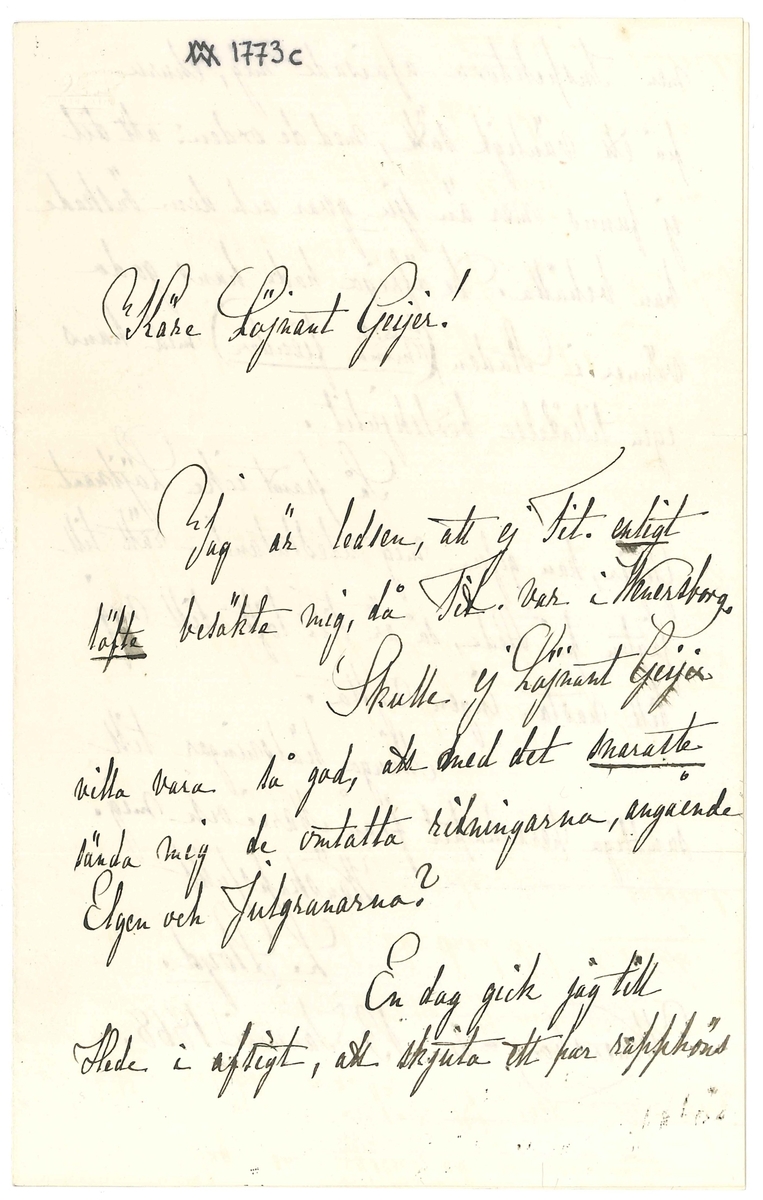 1773c
Käre Löjnant Geijer!
Jag är ledsen, att ej Tit. enligt
löfte besökte mig, då Tit. var i Wenersborg.
Skulle ej Löjnant Geijer
villa vara så god, att med det snaraste
sända mig de omtalta ritningarna, angående
Elgen och Julgranarna?
En dag gick jag till
Hede i afsigt, att skjuta ett par rapphöns